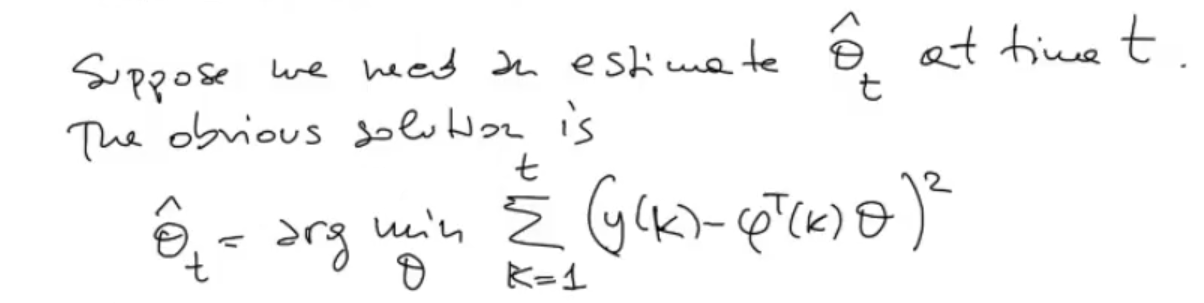 Suppose we need an estimate θ̂_t at time t.
The obvious solution is
θ̂_t = arg min_θ ∑_{k=1}^{t} (y(k) - φ^T(k) θ)^2